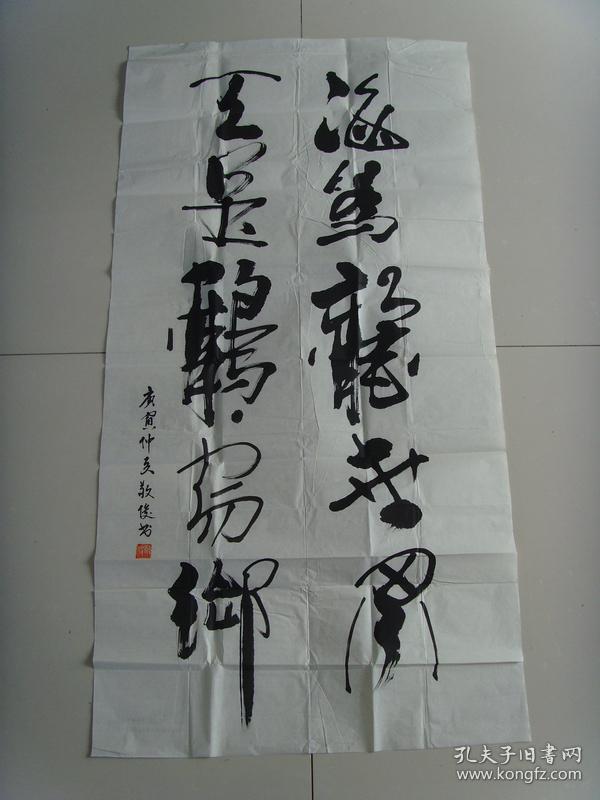 海为龙世界
天是鹤家乡
庚寅仲夏敬俊书
孔夫子旧书网
www.kongfz.com